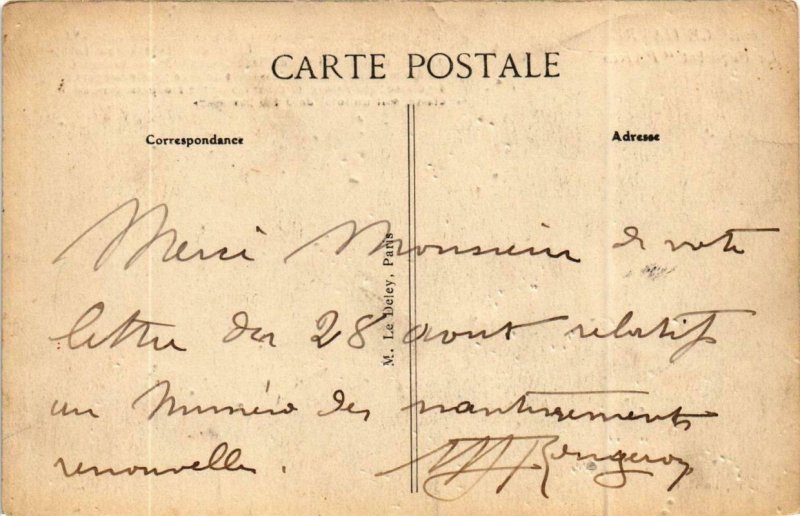 CARTE POSTALE
Correspondance
Adresse
M. Le Deley, Paris
Merci Monsieur de votre
lettre du 28 aout relatif
au Numéro des nantissements
renouvelle.